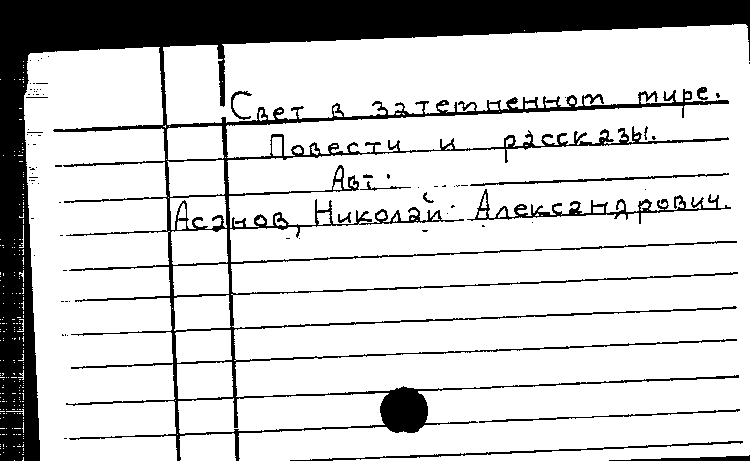 Свет в затемненном мире.
Повести и рассказы.
Авт.
Асанов, Николай Александрович.